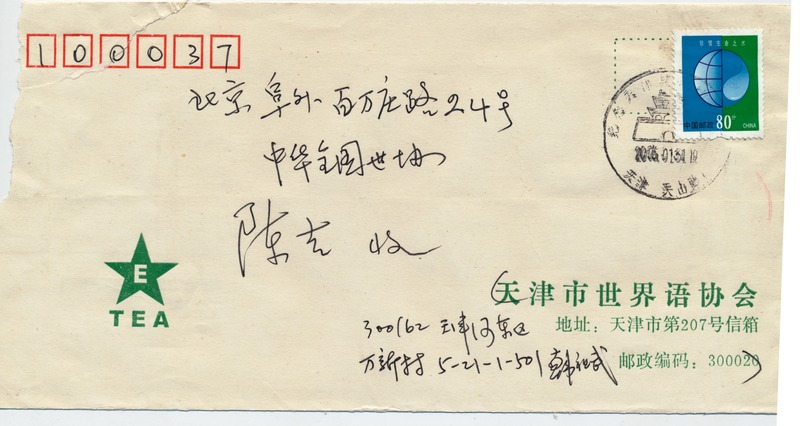 100037
珍惜生命之水
中国邮政 80分 CHINA
北京阜外百万庄路24号
中华全国世协
2005.01.31.19
天津
陈吉 收
E
TEA
天津市世界语协会
地址：天津市第207号信箱
邮政编码：300020
300162 天津河东区
万新村 5-21-1-501 韩祖武